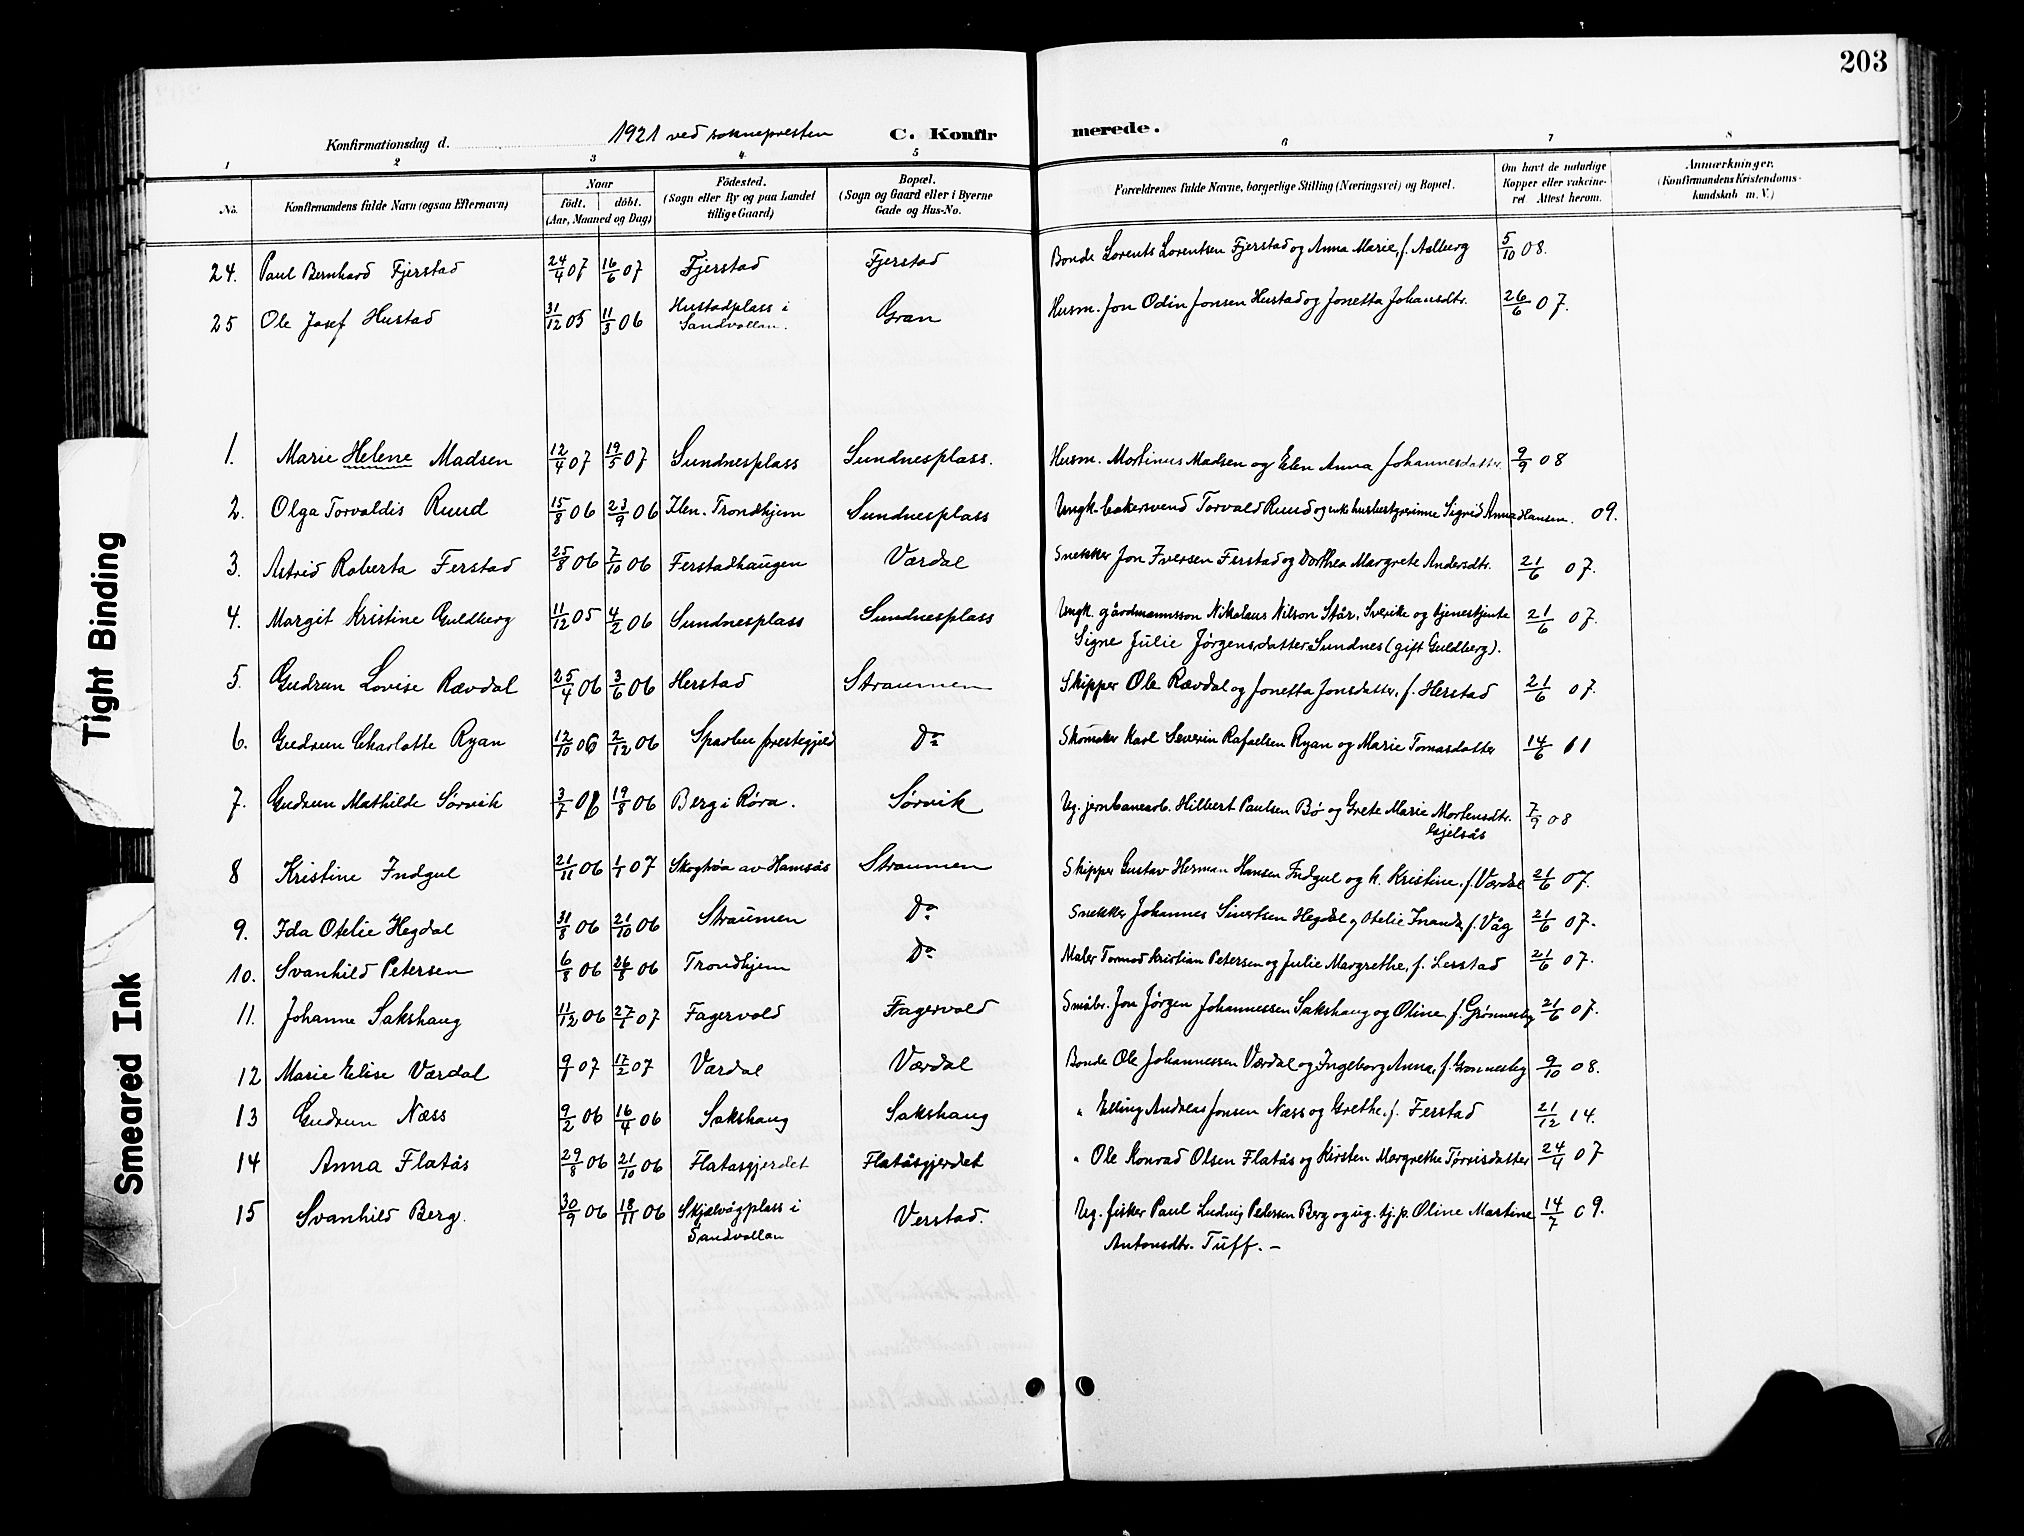 203
Konfirmationsdag d. 1921 ved soknepresten C. Konfirmerede.
1 2 3 4 5 6 7 8
No. Konfirmandens fulde Navn (ogsaa Efternavn) Naar født. døbt. (Aar, Maaned og Dag) Fødested. (Sogn eller By og paa Landet tillige Gaard) Bopæl. (Sogn og Gaard eller i Byerne Gade og Hus-No. Forældrenes fulde Navne, borgerlige Stilling (Næringsvei) og Bopæl. Om havt de naturlige Kopper eller vakcineret. Attest herom. Anmærkninger. (Konfirmandens Kristendomskundskab m. V.)
24. Paul Bernhard Fjerstad 24/4 07 16/6 07 Fjerstad Fjerstad Bonde Lorents Lorentsen Fjerstad og Anna Marie, f. Aalberg 5/10 08.
25 Ole Josef Hustad 31/12 05 11/3 06 Hustadplass i Sandvollan. Gran Husm. Jon Odin Jonsen Hustad og Jonetta Johansdtr. 26/6 07.
1. Marie Helene Madsen 12/4 07 19/5 07 Sundnesplass Sundnesplass. Husm. Mortinus Madsen og Elen Anna Johannesdatter. 9/9 08
2. Olga Torvaldis Ruud 15/8 06 23/9 06 Ilen. Trondhjem Sundnesplass Ungk. bakersvend Torvald Ruud og enke husbestyrerinne Sigrid Anna Hansen. 09.
3. Astrid Roberta Ferstad 25/8 06 7/10 06 Ferstadhaugen Værdal Snekker Jon Iversen Ferstad og Dorthea Margrete Andersdtr. 21/6 07.
4. Margit Kristine Guldberg 11/12 05 4/2 06 Sundnesplass Sundnesplass Ungk. gårdmannsson Nikolaus Nilson Står, Sverike og tjenestjente 21/6 07.
Signe Julie Jørgensdatter Sundnes (gift Guldberg).
5. Gudrun Lovise Rævdal 25/4 06 3/6 06 Herstad Straumen Skipper Ole Rævdal og Jonetta Jonsdatter, f. Herstad 21/6 07.
6. Gudrun Charlotte Ryan 12/10 06 2/12 06 Sparbu prestegjeld Do Skomaker Karl Severin Rafaelsen Ryan og Marie Tomasdatter 14/6 11
7. Gudrun Mathilde Sørvik 3/7 06 19/8 06 Berg i Røra. Sørvik Ug. jernbanearb. Hilbert Paulsen Bø og Grete Marie Mortensdtr. Gjelsås 7/9 08
8 Kristine Indgul 21/11 06 1/1 07 Skogtrøa av Hamsås Straumen Skipper Gustav Herman Hansen Indgul og h. Kristine, f. Værdal 21/6 07.
9. Ida Otelie Hegdal 31/8 06 21/10 06 Straumen Do Snekker Johannes Sivertsen Hegdal og Otelie f. Våg 21/6 07.
10. Svanhild Petersen 6/8 06 26/8 06 Trondhjem Do Maler Tormod Kristian Petersen og Julie Margrethe, f. Lerstad 21/6 07.
11. Johanne Sakshaug 11/12 06 27/1 07 Fagervold Fagervold Småbr. Jon Jørgen Johannessen Sakshaug og Oline, f. Grønnesby 21/6 07.
12 Marie Elise Værdal 9/1 07 17/2 07 Værdal Værdal Bonde Ole Johannessen Værdal og Ingeborg Anna, f. Grønnesby 9/10 08.
13 Gudrun Næss 9/2 06 16/4 06 Sakshaug Sakshaug " Elling Andreas Jonsen Næss og Grethe, f. Ferstad 21/12 14.
14 Anna Flatås 29/8 06 21/10 06 Flatåsgjerdet Flatåsgjerdet " Ole Konrad Olsen Flatås og Kirsten Margrethe Tørrisdatter 24/4 07
15 Svanhild Berg. 30/9 06 18/11 06 Skjelvågplass i Sandvollan Verstad. Ug. fisker Paul Ludvig Pedersen Berg og ug. tj.p. Oline Martine 14/7 09.
Antonsdtr. Tuff. –
Tight Binding
Smeared Ink